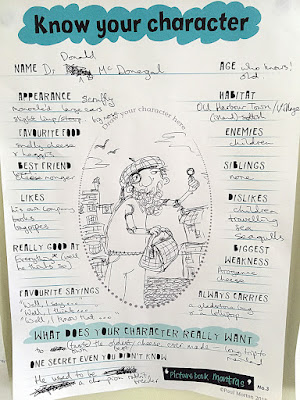 Know your character
Donald
NAME Dr Mc Donegal
AGE who knows!
old
APPEARANCE Scruffy
large ears
big nose
HABITAT
Old Harbour Town / Village
FAVOURITE FOOD
smelly cheese
+ haggis
ENEMIES
children
BEST FRIEND
Cheese monger
SIBLINGS
none
LIKES
his own company
books
bagpipes
DISLIKES
children
travelling
sea
seagulls
REALLY GOOD AT
Everything (well
he thinks so)
BIGGEST
WEAKNESS
Arrogance
cheese
FAVOURITE SAYINGS
"Well, I say...
"Well I think...
"Well I know that..."
ALWAYS CARRIES
a gladstone bag
a lollipop
Draw your character here
WHAT DOES YOUR CHARACTER REALLY WANT
to taste the oldest cheese ever made
ONE SECRET EVEN YOU DIDN'T KNOW
He used to be
a champion
Picturebook Mantras
No.3
©Paul Morton